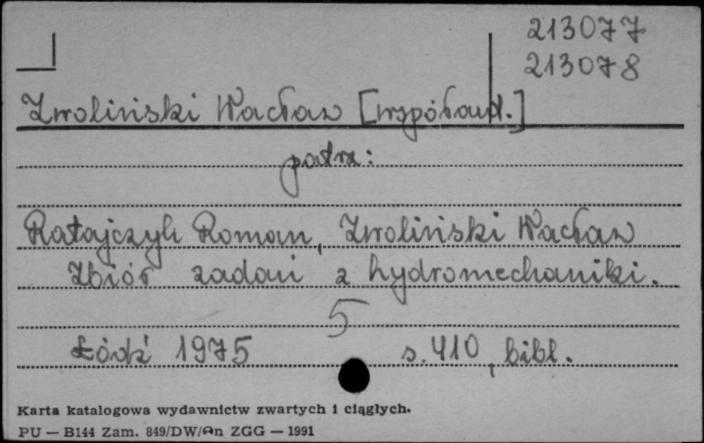 213077
213078
Zwoliński Wacław [współaut.]
patrz:
Ratajczyk Roman, Zwoliński Wacław
Zbiór zadań z hydromechaniki.
5
Łódź 1975 s. 410, bibl.
Karta katalogowa wydawnictw zwartych i ciągłych.
PU — B144 Zam. 849/DW/An ZGG — 1991